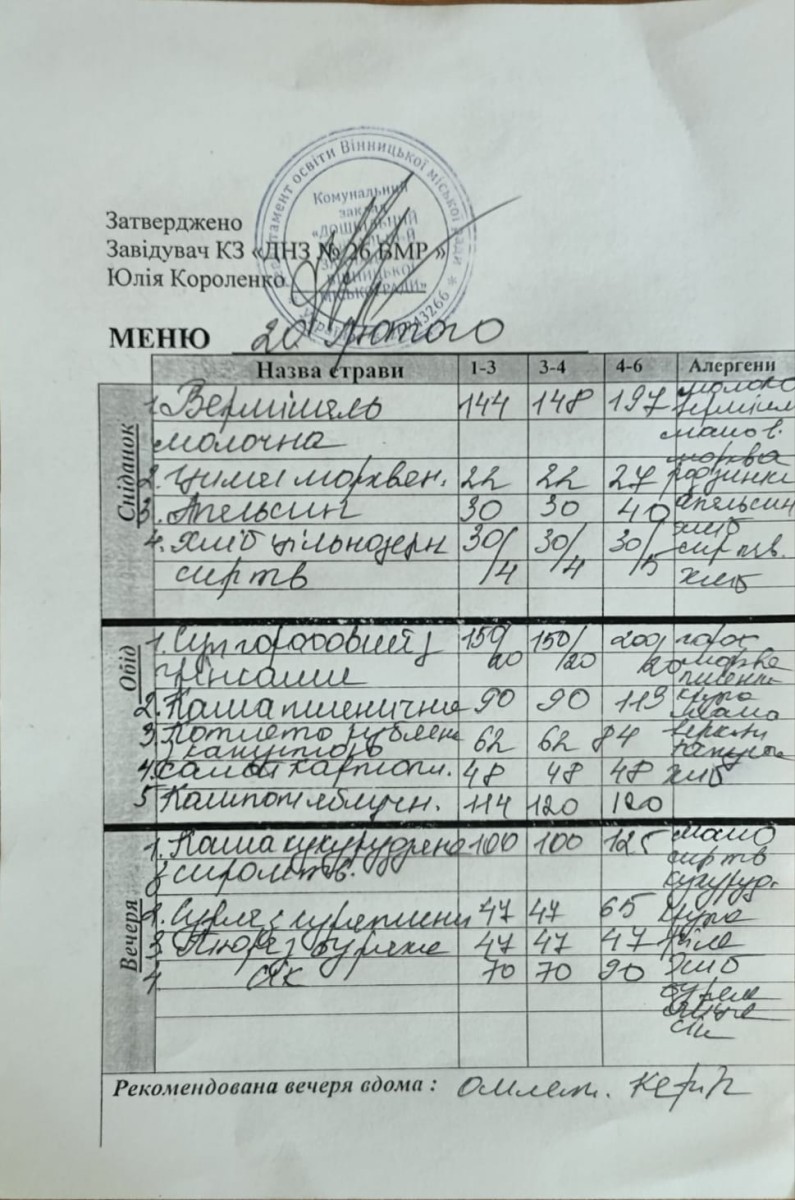 департамент освіти Вінницької міської ради
Комунальний
заклад
Затверджено
Завідувач КЗ «ДНЗ № 26 ВМР »
Юлія Короленко
МЕНЮ 20 лютого
Назва страви 1-3 3-4 4-6 Алергени
Сніданок
1. Вермішель 144 148 197 молоко
молочна
2. Цимес морквян. 22 22 27 родзинки
3. Апельсин 30 30 40 апельсин
4. Хліб цільнозерн 30/4 30/4 30/5 сир тв.
сир тв хліб
Обід
1. Суп гороховий з 150/20 150/20 200/20 горох
грінками
2. Каша пшенична 90 90 113 крупа
3. Котлета рублена 62 62 84
з капустою
4. салат картопл. 48 48 48 хліб
5 Компот яблучн. 114 120 120
Вечеря
1. Каша кукурудзяна 100 100 125 масло
з сиром тв. сир тв
2. 47 47 65 крупа
3. Пюре з буряка 47 47 47
4. Сік 70 70 90 хліб
Рекомендована вечеря вдома : Омлет. Кефір